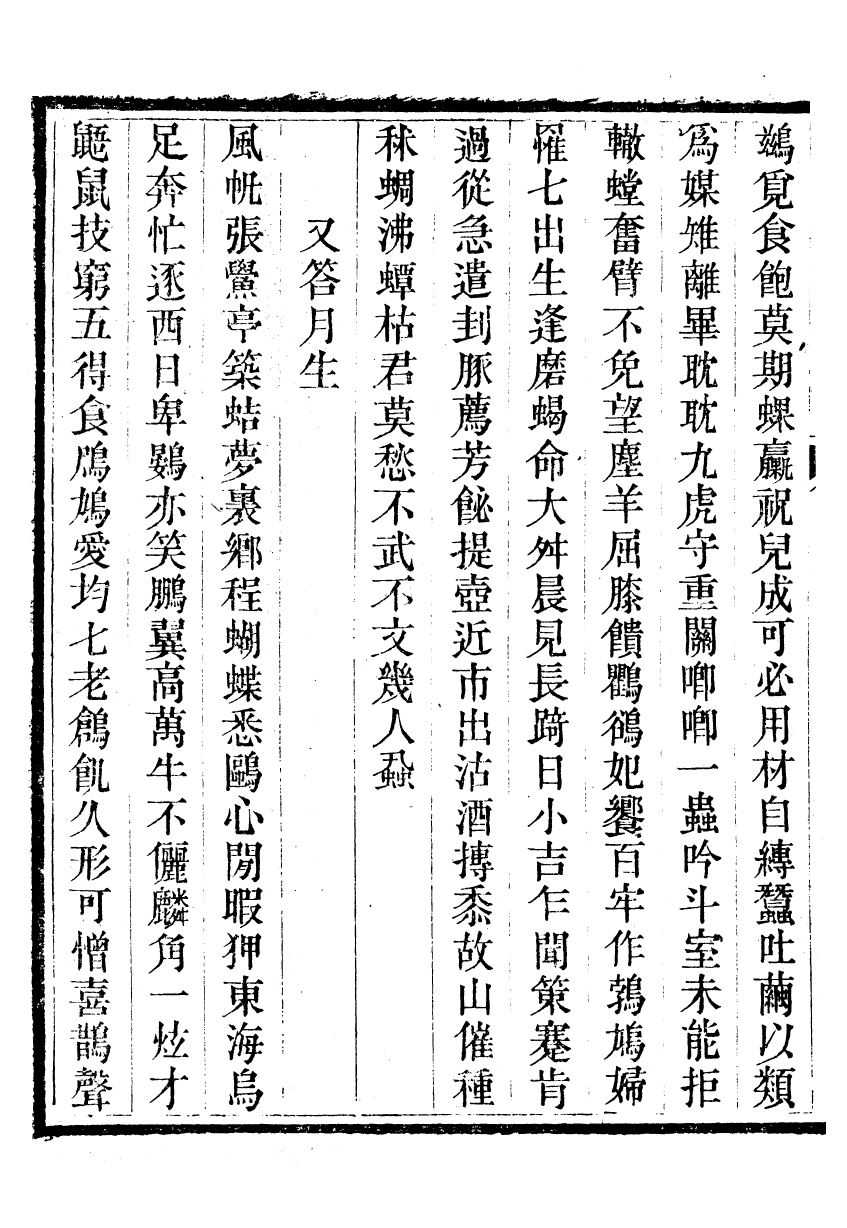 鷀覓食飽莫期蜾蠃祝兒成可必用材自縛蠶吐繭以類
爲媒雉離畢耽耽九虎守重關唧唧一蟲吟斗室未能拒
轍螳奮臂不免望塵羊屈膝饋鸜鵒妃饗百牢作鶉鳩婦
罹七出生逢磨蝎命大舛晨見長踦日小吉乍聞策蹇肯
過從急遣刲豚薦芳飶提壺近市出沽酒摶黍故山催種
秫蜩沸蟫枯君莫愁不武不文幾人蝨
又答月生
風帆張鱟亭築蛣夢裏鄉程蝴蝶悉鷗心閒暇狎東海烏
足奔忙逐西日卑鷃亦笑鵬翼高萬牛不儷麟角一炫才
鼯鼠技窮五得食鳲鳩愛均七老鶬飢久形可憎喜鵲聲